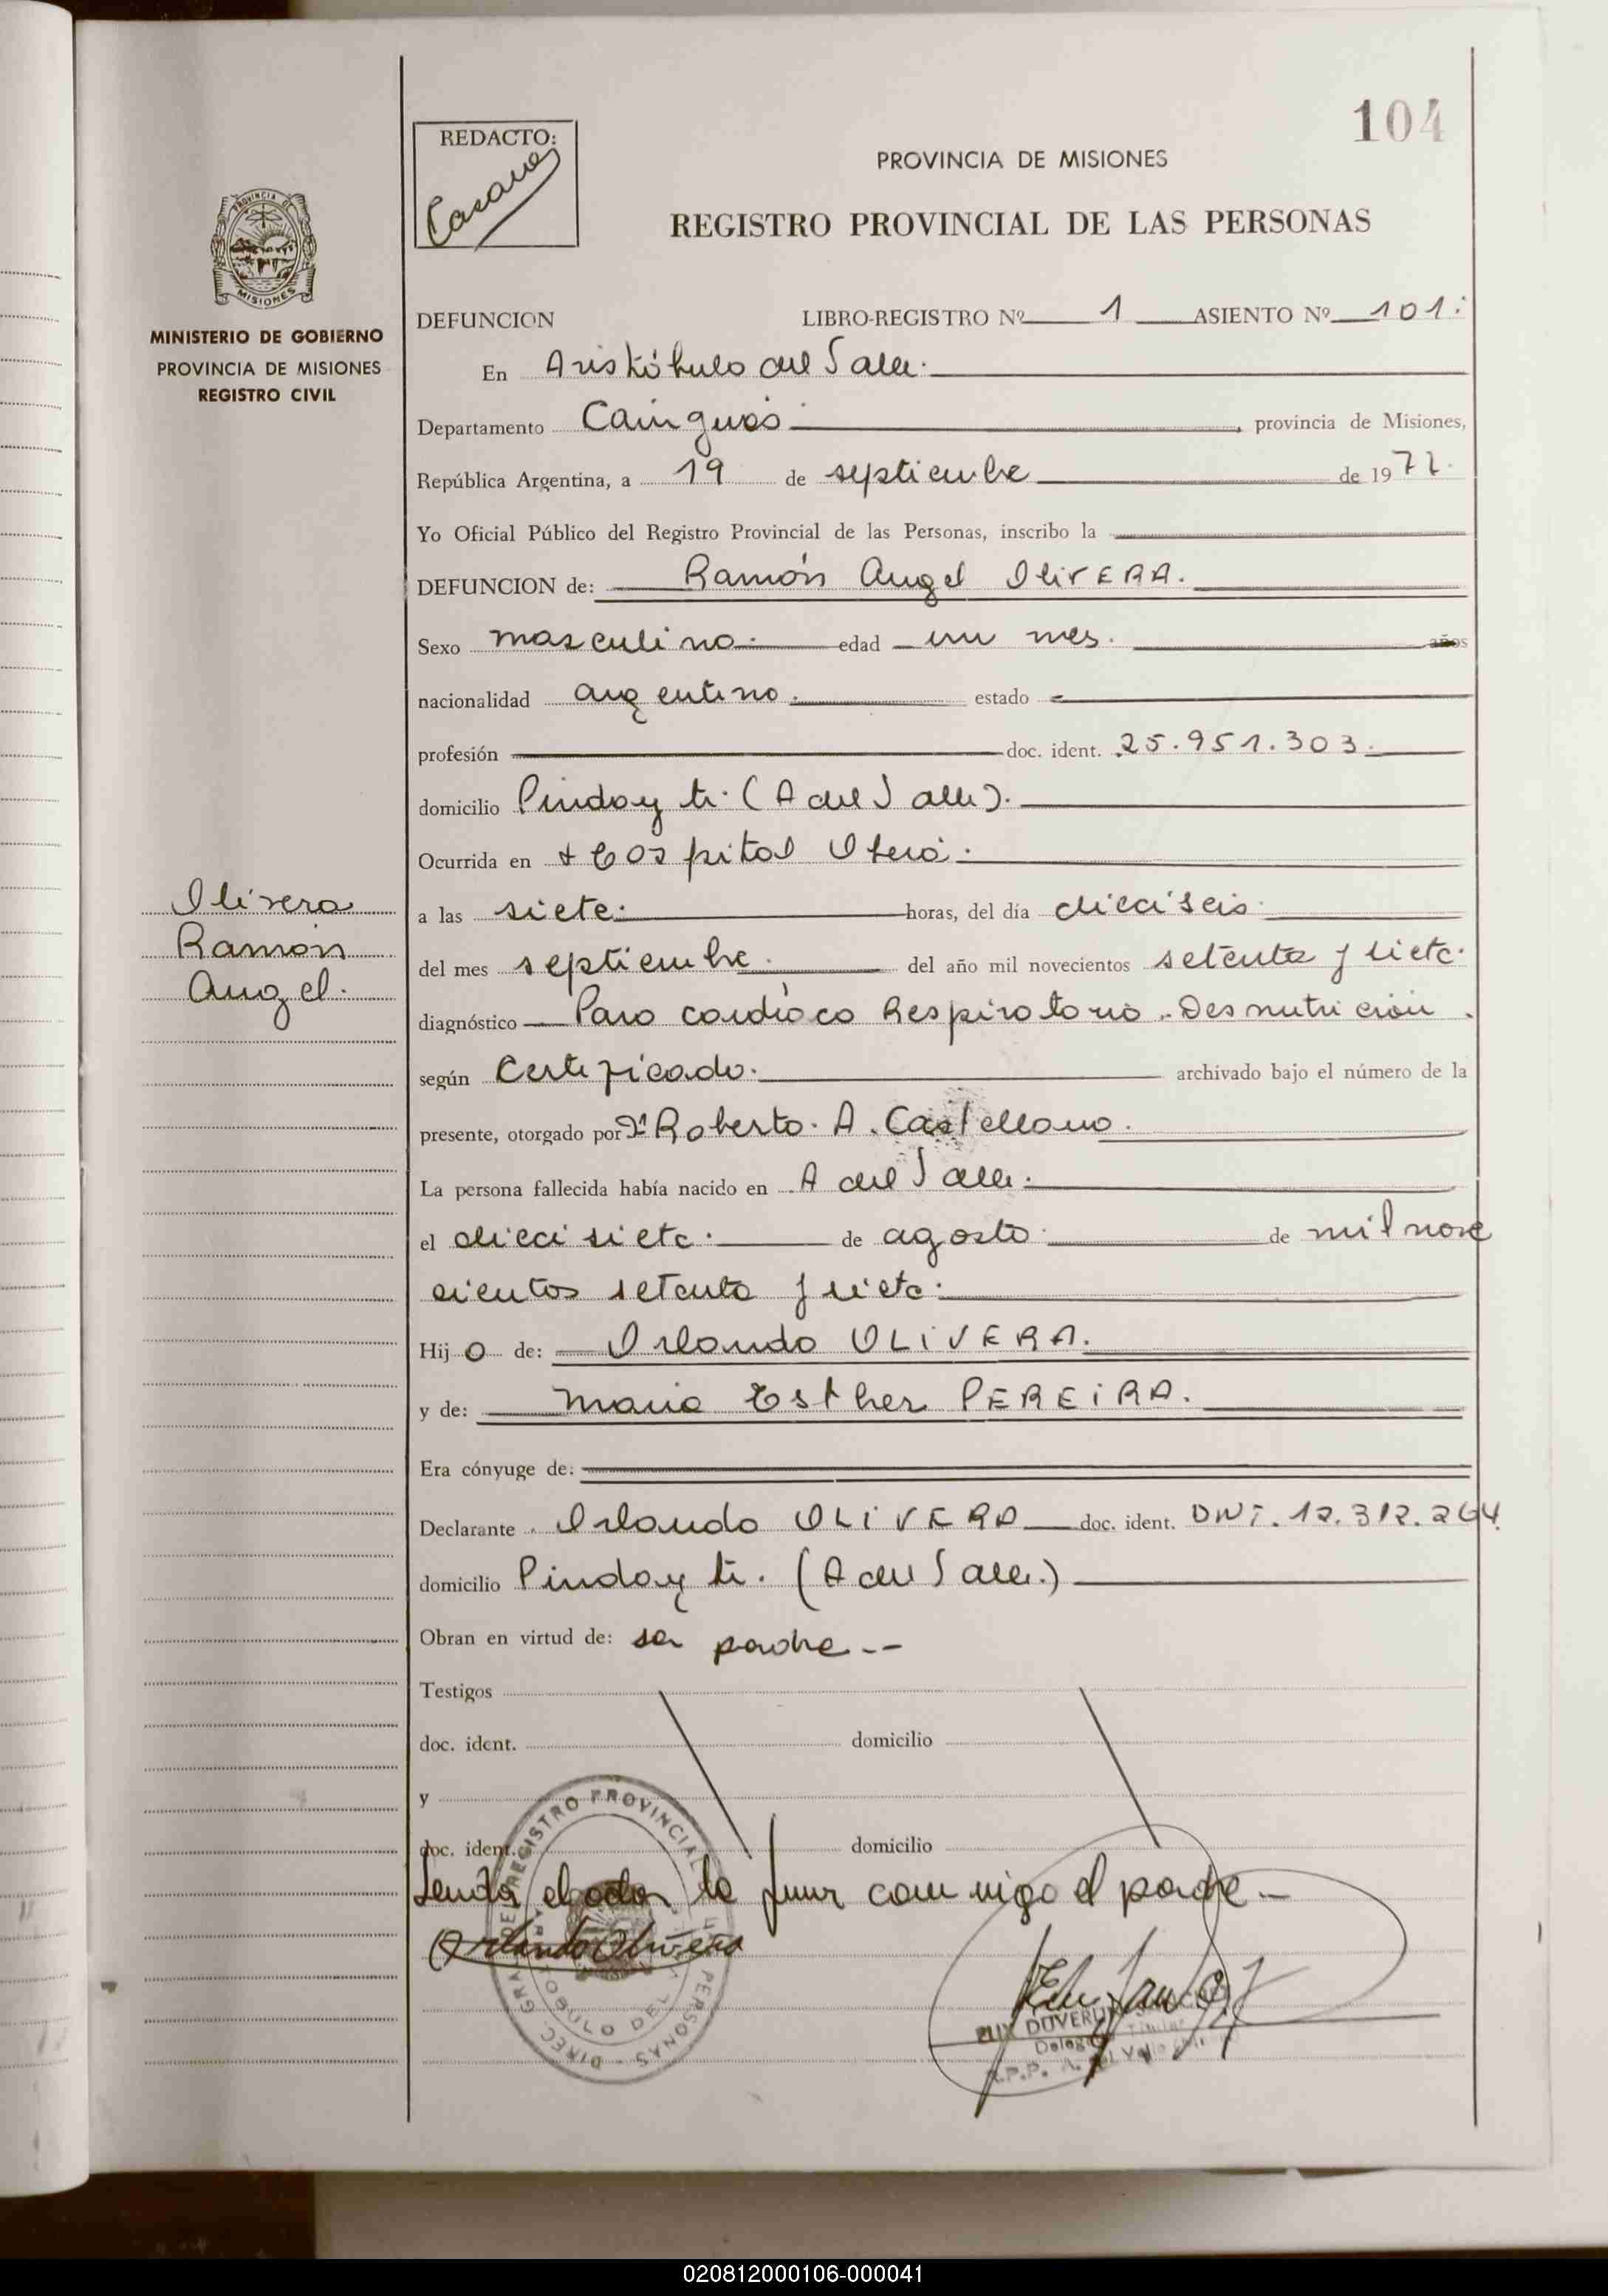 104
REDACTO:
PROVINCIA DE MISIONES
REGISTRO PROVINCIAL DE LAS PERSONAS
PROVINCIA DE
MISIONES
MINISTERIO DE GOBIERNO
PROVINCIA DE MISIONES
REGISTRO CIVIL
DEFUNCION LIBRO-REGISTRO Nº 1 ASIENTO Nº 101.
En Aristóbulo del Valle.
Departamento Cainguás , provincia de Misiones,
República Argentina, a 19 de septiembre de 1977.
Yo Oficial Público del Registro Provincial de las Personas, inscribo la
DEFUNCION de: Ramón Angel OlivERA.
Sexo masculino. edad un mes. años
nacionalidad argentino. estado
profesión doc. ident. 25.951.303.
domicilio Pindoy ti. (A del Valle).
Ocurrida en Hospital Oberá.
a las siete. horas, del día dieciseis.
del mes septiembre. del año mil novecientos setenta y siete.
Olivera
Ramón
Angel.
diagnóstico Paro cardíaco Respiratorio. Desnutrición.
según Certificado. archivado bajo el número de la
presente, otorgado por Dr Roberto. A. Castellano.
La persona fallecida había nacido en A del Valle.
el diecisiete. de agosto de mil nove
cientos setenta y siete.
Hijo de: Orlando OLIVERA.
y de: Maria Esther PEREIRA.
Era cónyuge de:
Declarante Orlando OLIVERA doc. ident. DNI. 12.312.264.
domicilio Pindoy ti. (A del Valle.)
Obran en virtud de: ser padre.--
Testigos
doc. ident. domicilio
y
doc. ident. domicilio
Leída el acta la firma conmigo el padre.-
Orlando Olivera
DIREC. GRAL. DEL REGISTRO PROVINCIAL DE LAS PERSONAS
ARISTOBULO DEL VALLE
020812000106-000041